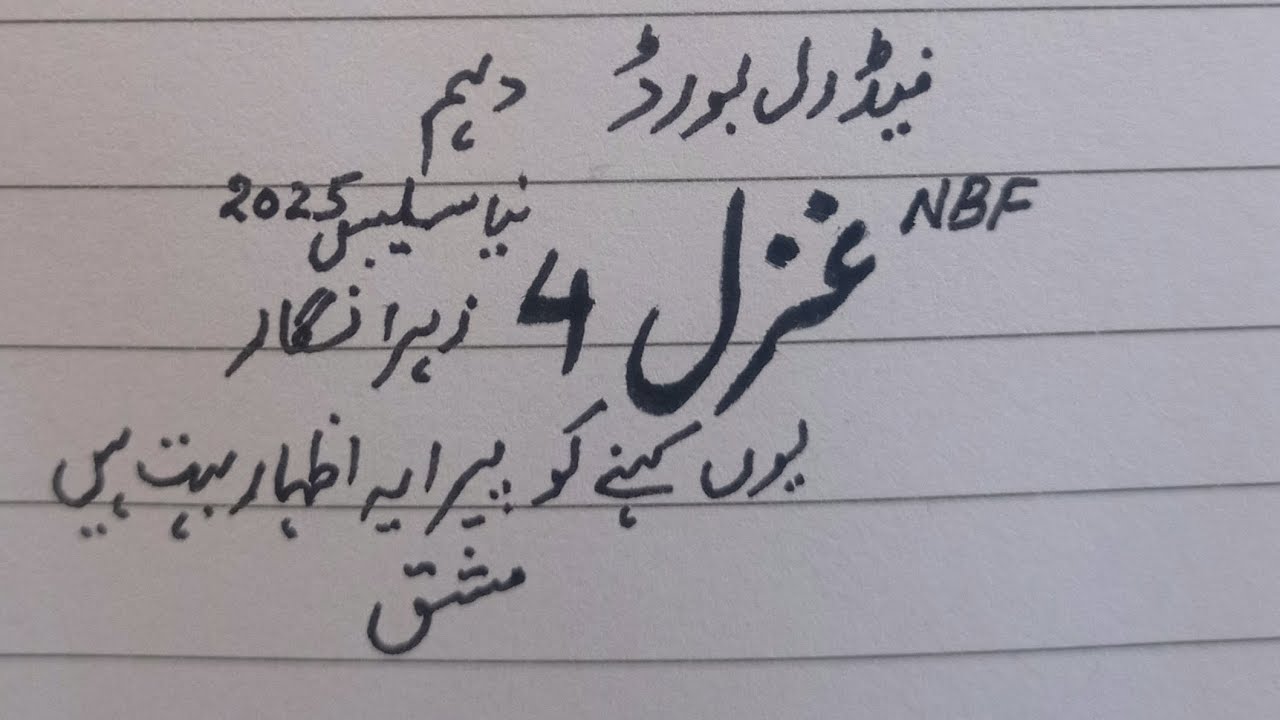 فیڈرل بورڈ دہم
NBF غزل 4 نیا سلیبس 2025
زہرا نگار
یوں کہنے کو پیرایہ اظہار بہت ہیں
مشق